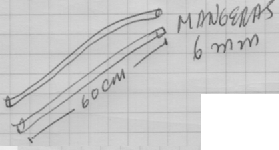 MANGERAS
6 mm
60CM